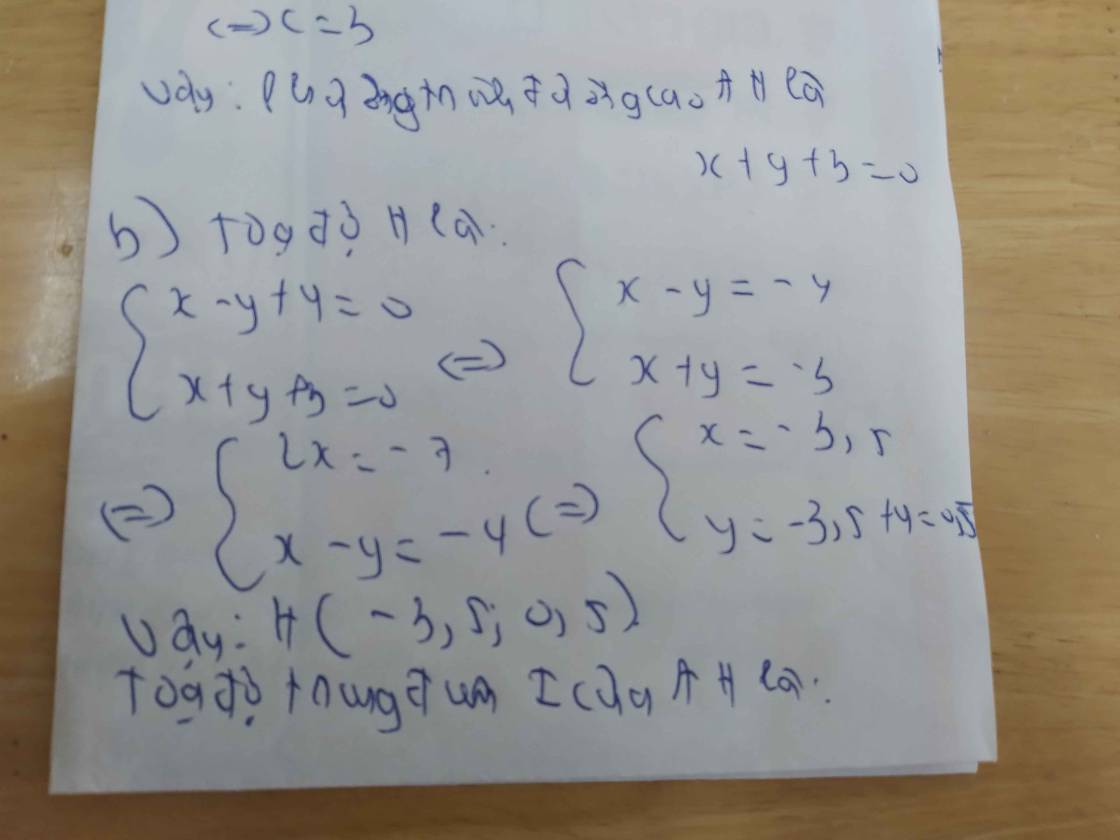 <=> c = 3
Vậy: Phương trình đường cao AH là
x + y + 3 = 0
b) Toạ độ H là:
{ x - y + 4 = 0
x + y + 3 = 0 <=> { x - y = -4
x + y = -3
<=> { 2x = -7
x - y = -4 <=> { x = -3,5
y = -3,5 + 4 = 0,5
Vậy: H(-3,5; 0,5)
Toạ độ trung điểm I của AH là: